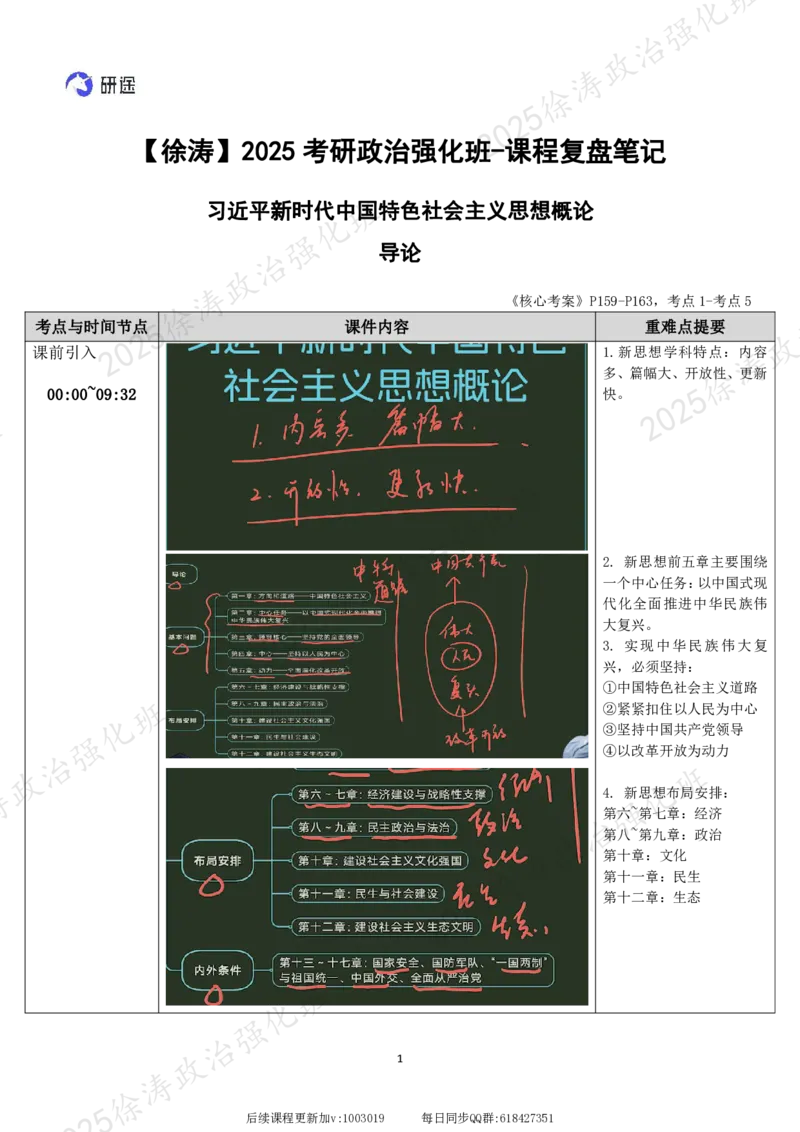 研途
【徐涛】2025 考研政治强化班-课程复盘笔记
习近平新时代中国特色社会主义思想概论
导论
《核心考案》P159-P163，考点 1-考点 5
考点与时间节点
课件内容
重难点提要
课前引入
00:00~09:32
习近平新时代中国特色
社会主义思想概论
1. 内容多 篇幅大.
2. 开放性. 更新快.
1.新思想学科特点：内容
多、篇幅大、开放性、更新
快。
导论
基本问题
第一章：方向和道路——中国特色社会主义
第二章：中心任务——以中国式现代化全面推进
中华民族伟大复兴
第三章：领导核心——坚持党的全面领导
第四章：中心——坚持以人民为中心
第五章：动力——全面深化改革开放
布局安排
第六～七章：经济建设与战略性支撑
第八～九章：民主政治与法治
第十章：建设社会主义文化强国
第十一章：民生与社会建设
第十二章：建设社会主义生态文明
道路
伟大
人民
复兴
改革开放
2. 新思想前五章主要围绕
一个中心任务：以中国式现
代化全面推进中华民族伟
大复兴。
3. 实现中华民族伟大复
兴，必须坚持：
①中国特色社会主义道路
②紧紧扣住以人民为中心
③坚持中国共产党领导
④以改革开放为动力
布局安排
第六～七章：经济建设与战略性支撑
第八～九章：民主政治与法治
第十章：建设社会主义文化强国
第十一章：民生与社会建设
第十二章：建设社会主义生态文明
经济
政治
文化
民生
生态
内外条件
第十三～十七章：国家安全、国防军队、“一国两制”
与祖国统一、中国外交、全面从严治党
4. 新思想布局安排：
第六~第七章：经济
第八~第九章：政治
第十章：文化
第十一章：民生
第十二章：生态
1
后续课程更新加v:1003019 每日同步QQ群:618427351
2025徐涛政治强化班